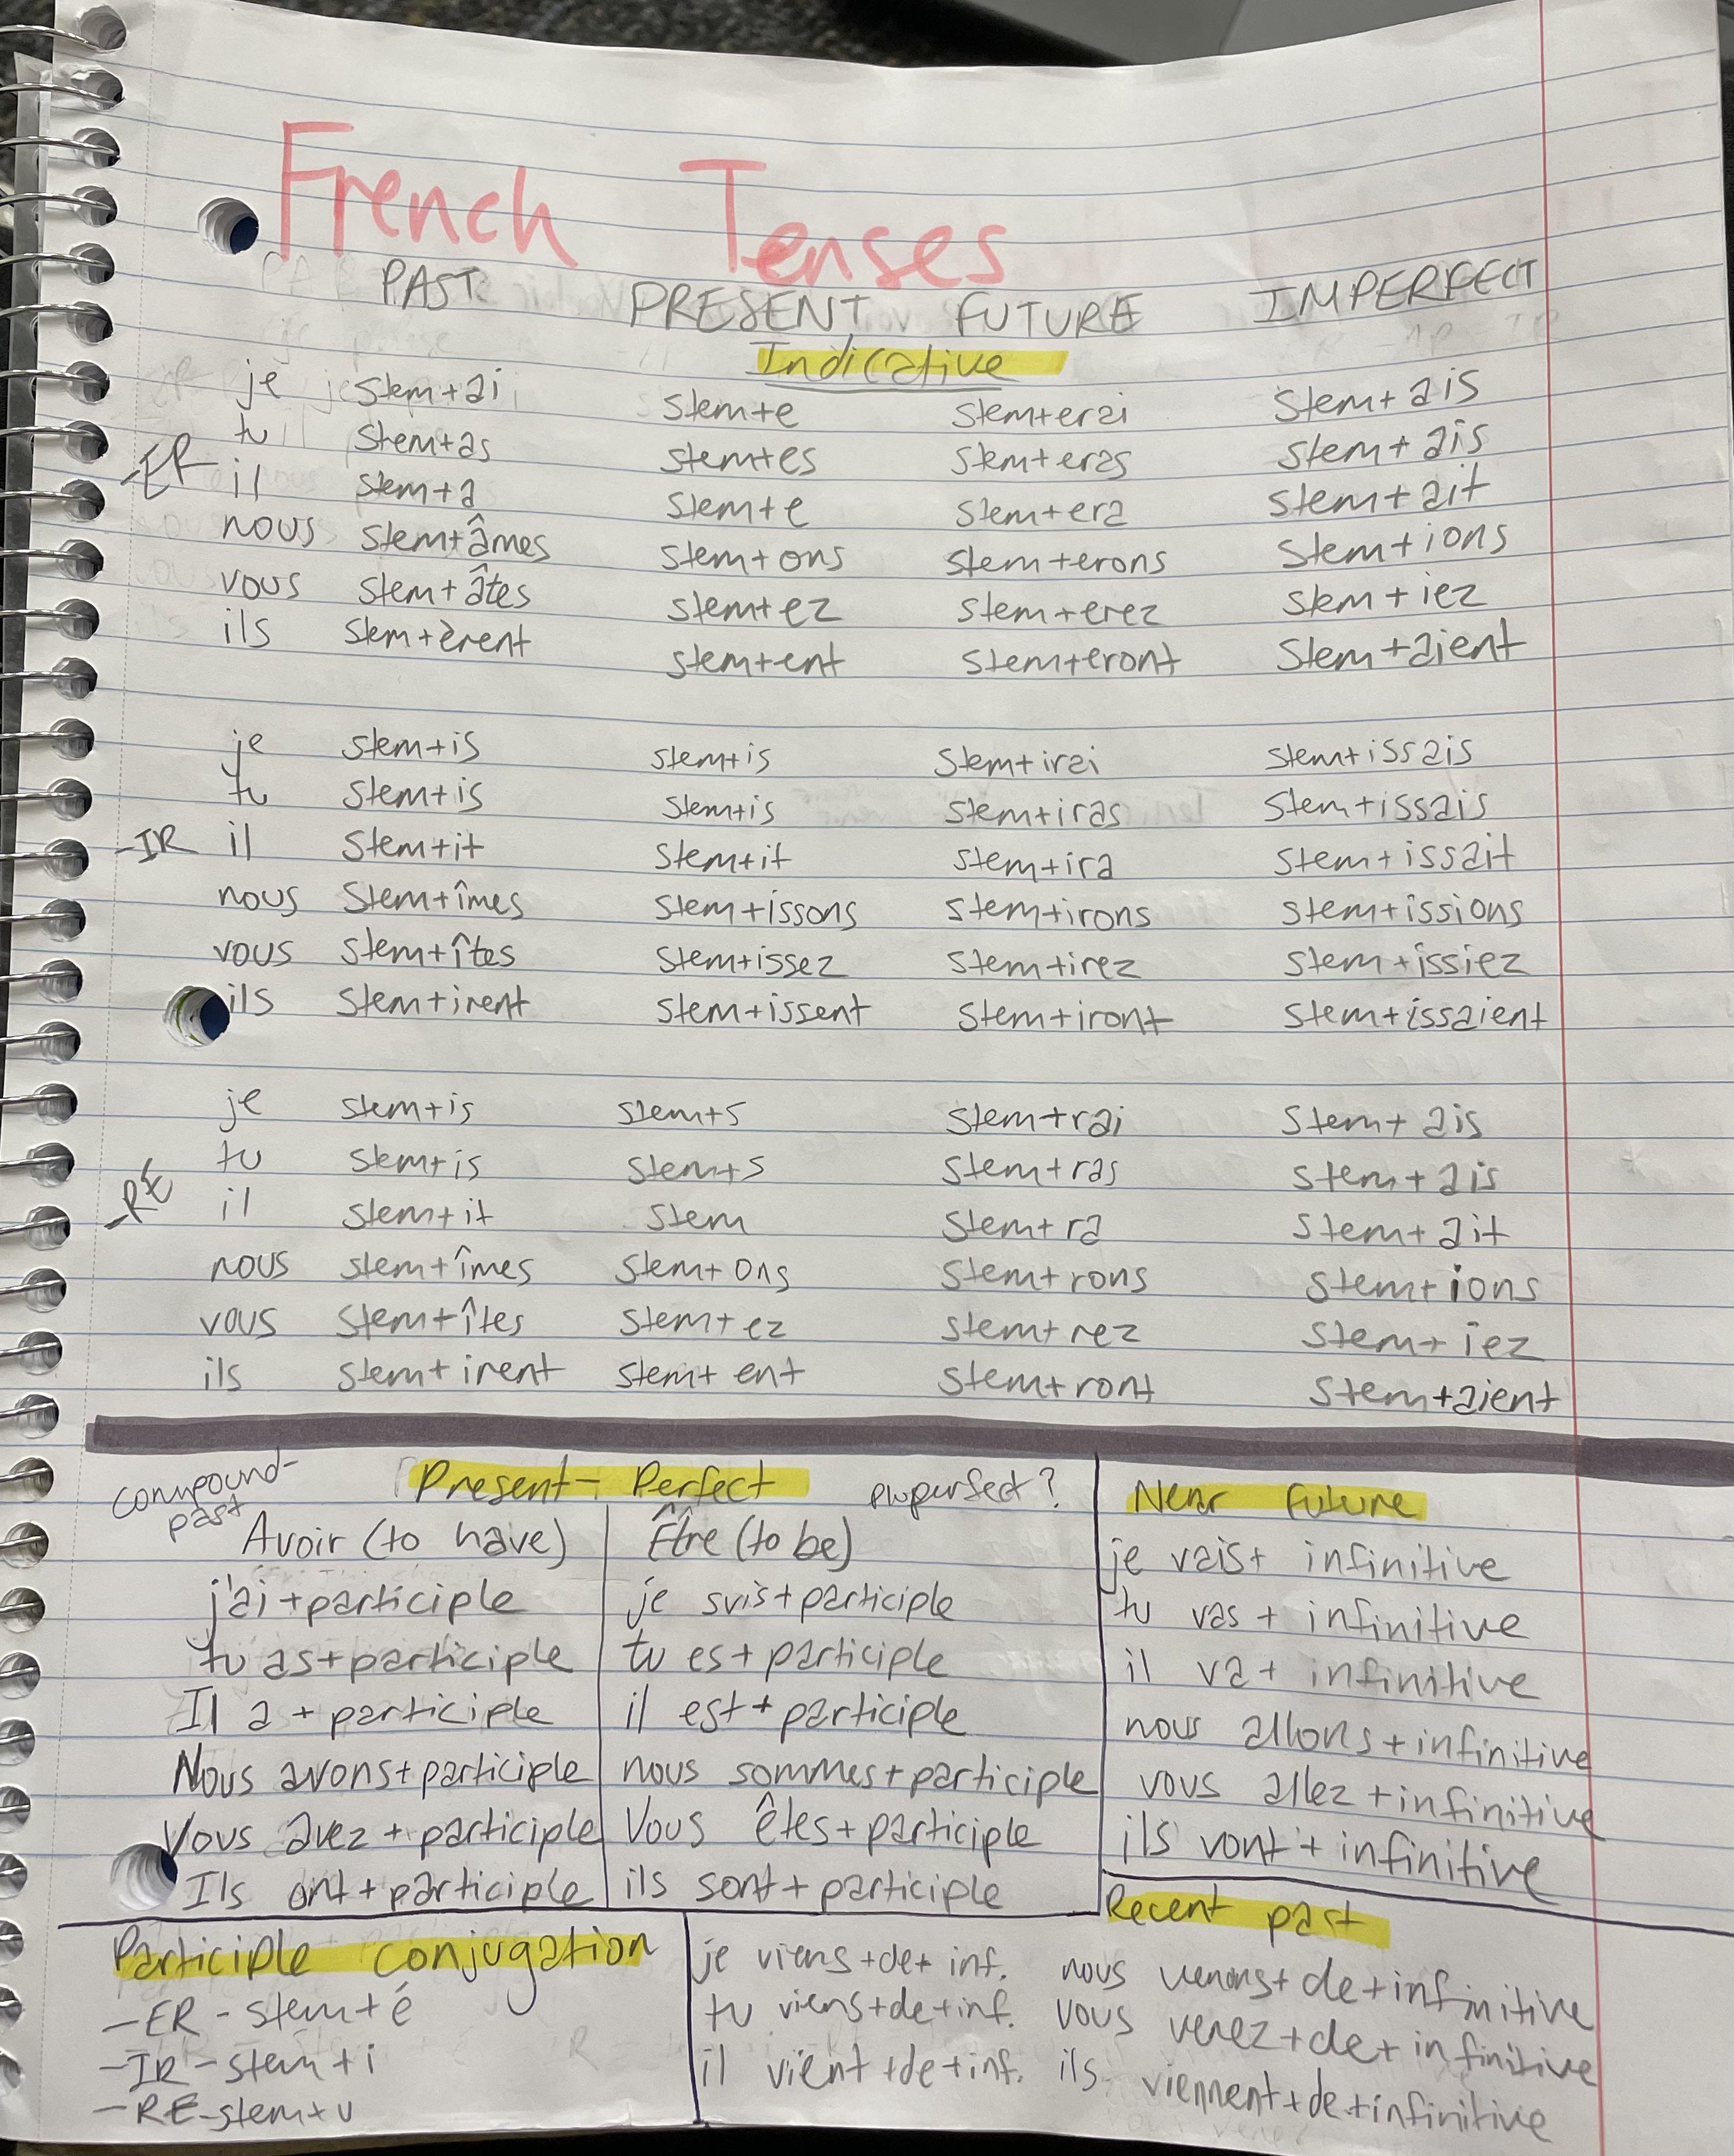 French Tenses
PAST PRESENT FUTURE IMPERFECT
Indicative
-ER
je stem+ai stem+e stem+erai stem+ais
tu stem+as stem+es stem+eras stem+ais
il stem+a stem+e stem+era stem+ait
nous stem+âmes stem+ons stem+erons stem+ions
vous stem+âtes stem+ez stem+erez stem+iez
ils stem+èrent stem+ent stem+eront stem+aient
je stem+is stem+is stem+irai stem+issais
tu stem+is stem+is stem+iras stem+issais
-IR il stem+it stem+it stem+ira stem+issait
nous stem+îmes stem+issons stem+irons stem+issions
vous stem+îtes stem+issez stem+irez stem+issiez
ils stem+irent stem+issent stem+iront stem+issaient
je stem+is stem+s stem+rai stem+ais
tu stem+is stem+s stem+ras stem+ais
-RE il stem+it stem stem+ra stem+ait
nous stem+îmes stem+ons stem+rons stem+ions
vous stem+îtes stem+ez stem+rez stem+iez
ils stem+irent stem+ent stem+ront stem+aient
compound-
past
Present-Perfect pluperfect?
Avoir (to have) Être (to be)
j'ai+participle je suis+participle
tu as+participle tu es+participle
Il a+participle il est+participle
Nous avons+participle nous sommes+participle
Vous avez+participle Vous êtes+participle
Ils ont+participle ils sont+participle
Near Future
je vais+ infinitive
tu vas + infinitive
il va + infinitive
nous allons+infinitive
vous allez +infinitive
ils vont + infinitive
Participle conjugation
-ER - stem+é
-IR - stem+i
-RE-stem+u
Recent past
je viens+de+ inf. nous venons+de+infinitive
tu viens+de+inf. vous venez+de+infinitive
il vient+de+inf. ils viennent+de+infinitive